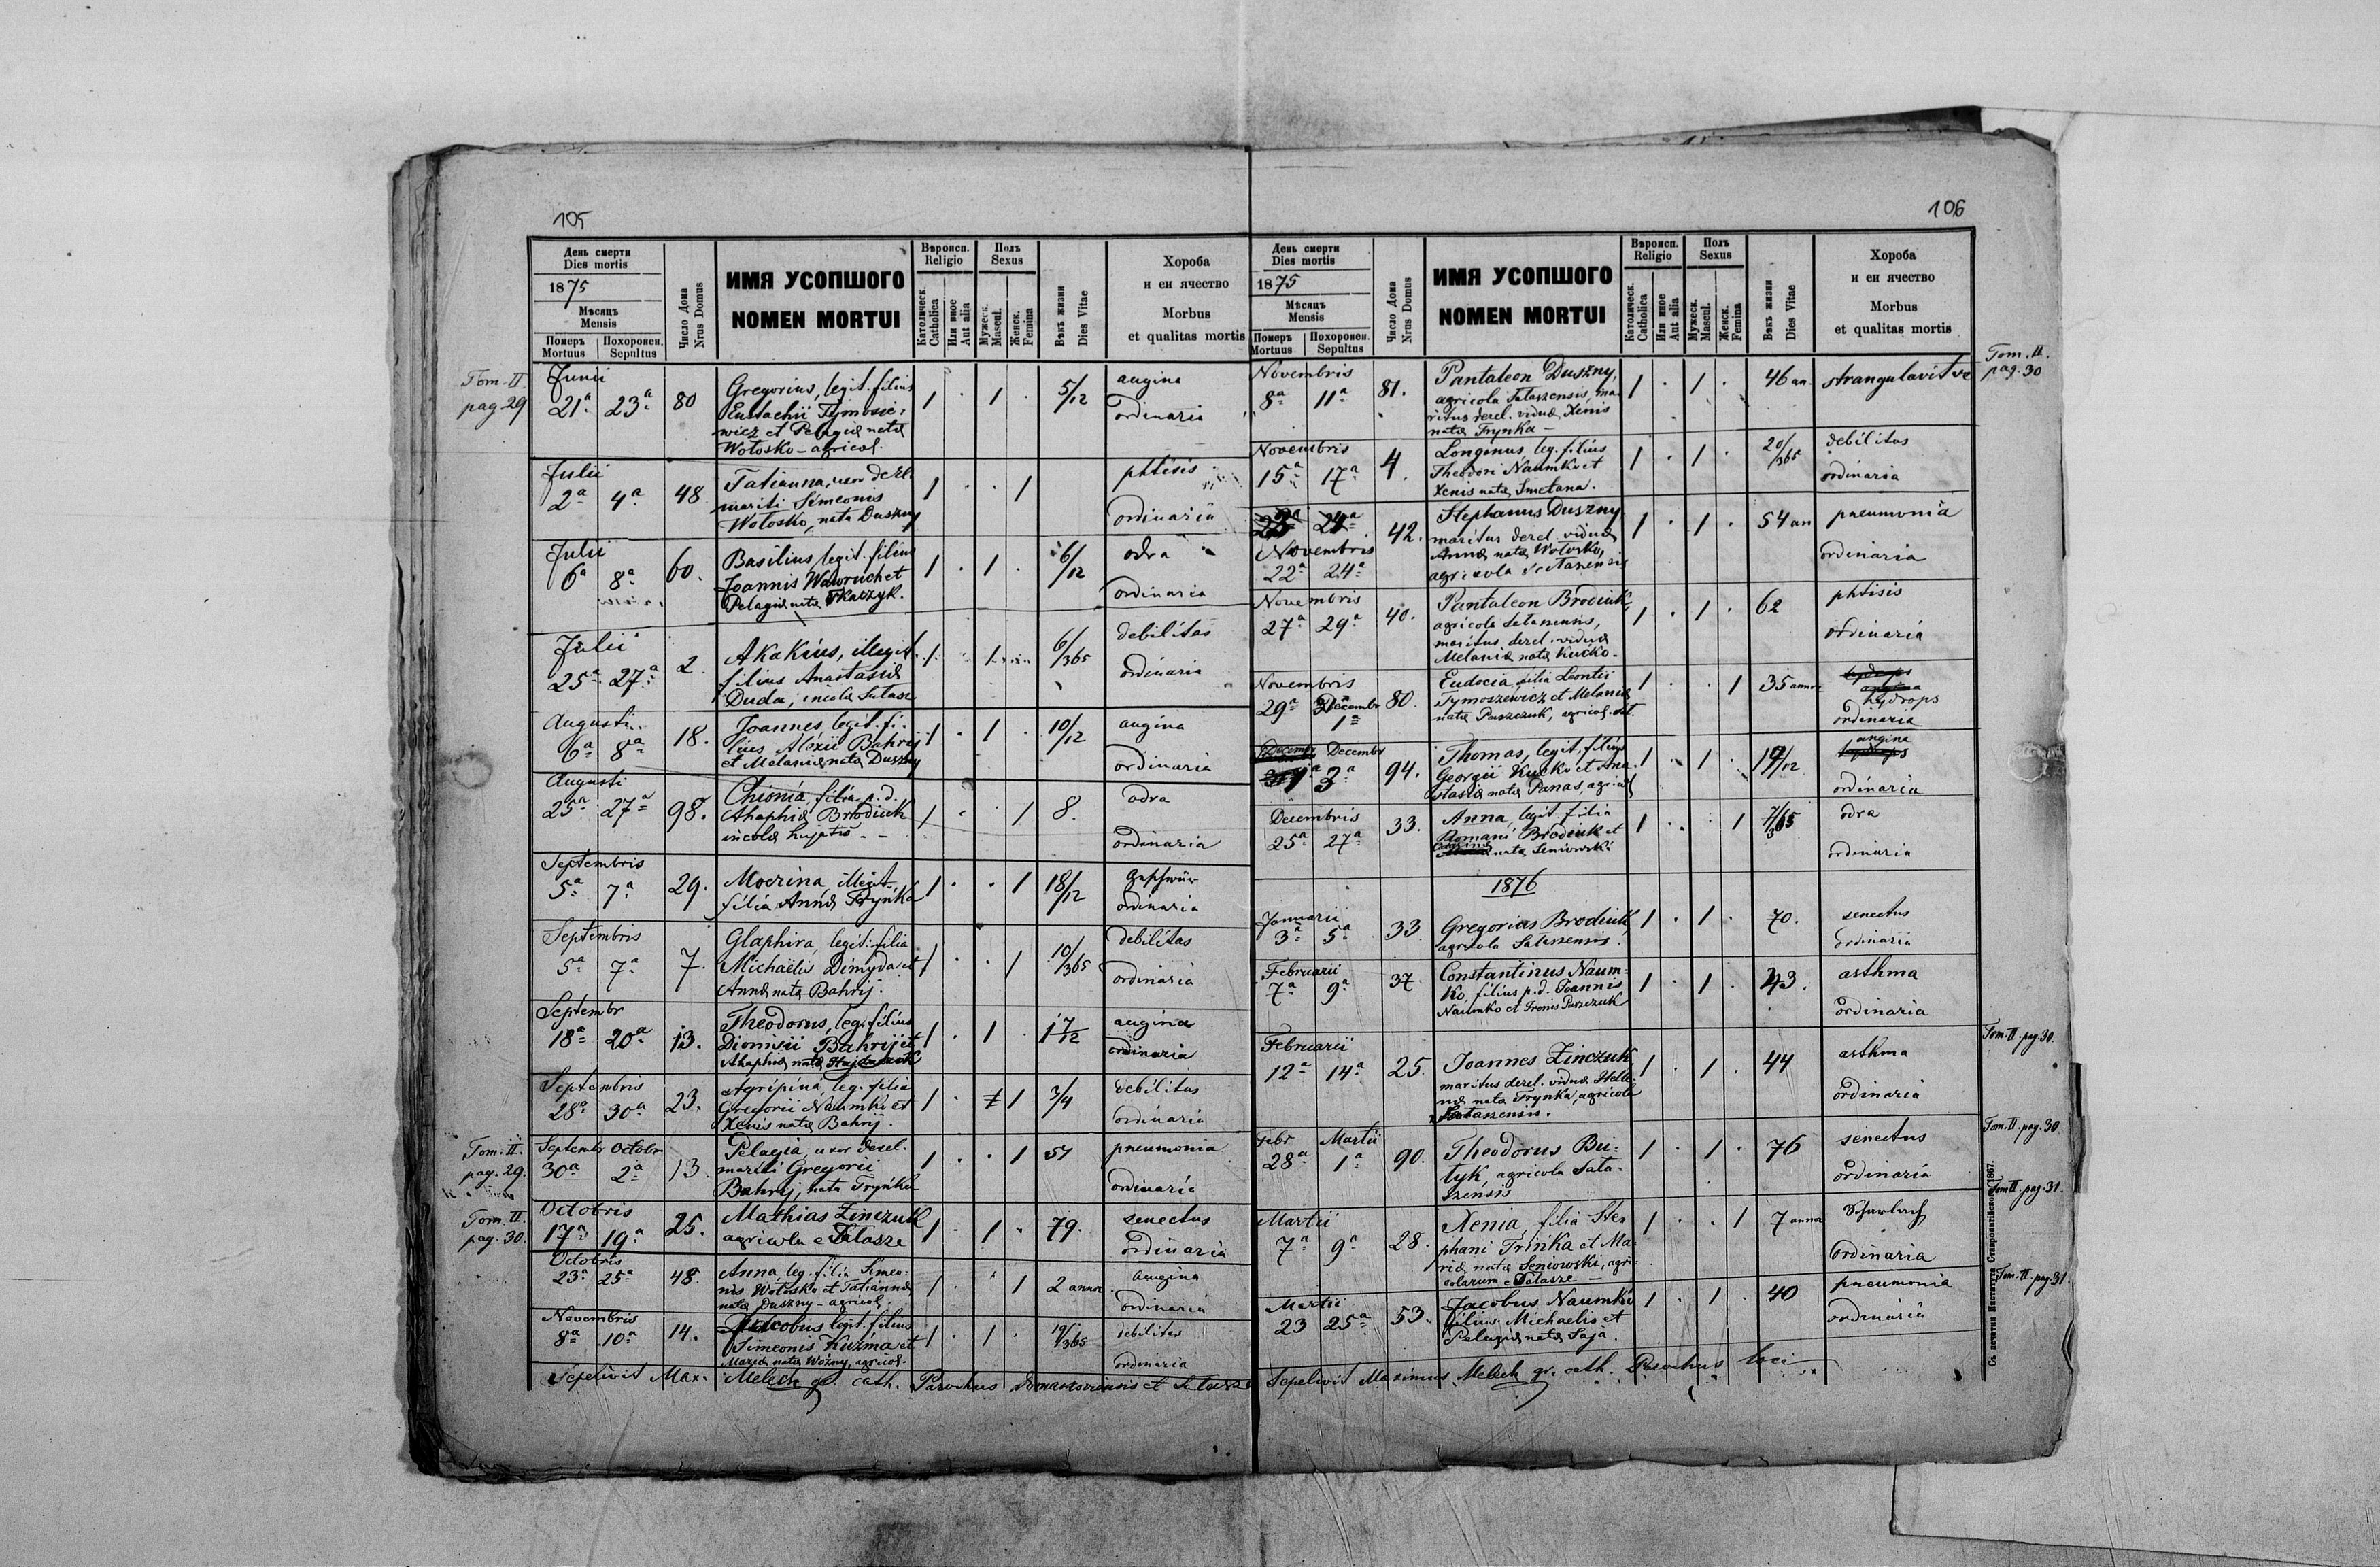 105
День смерти
Dies mortis
1875
Мѣсяць
Mensis
Померъ
Mortuus
Похоронен.
Sepultus
Число Дома
Nrus Domus
ИМЯ УСОПШОГО
NOMEN MORTUI
Вѣроисп.
Religio
Католическ.
Catholica
Или иное
Aut alia
Полъ
Sexus
Мужеск.
Mascul.
Женск.
Femina
Вѣкъ жизни
Dies Vitae
Хороба
и еи ячество
Morbus
et qualitas mortis
Tom. II.
pag. 29
Junii
21ª 23ª 80
Gregorius, legit. filius
Eustachii Tymosie-
wicz et Pelagiæ natæ
Wołosko - agricol.
1 · 1 · 5/12
angina
ordinaria
Julii
2ª 4ª 48
Tatianna, uxor derel.
mariti Simeonis
Wołosko, nata Duszny
1 · · 1
phtisis
ordinaria
Julii
6ª 8ª 60.
Basilius, legit. filius
Joannis Waworuch et
Pelagiæ natæ Tkaczyk.
1 · 1 · 6/12
odra
ordinaria
Julii
25ª 27ª 2.
Akakius, illegit.
filius Anastasiæ
Duda, incolæ Satasz
1 · 1 6/365
debilitas
ordinaria
Augusti
6ª 8ª 18.
Joannes, legit. fi-
lius Alexii Bahrij
et Melaniæ natæ Duszny
1 · 1 · 10/12
angina
ordinaria
Augusti
25ª 27ª 98.
Chionia, filia p. d.
Ahaphiæ Brodiuk
incolæ hujatis - -
1 · 1 8.
odra
ordinaria
Septembris
5ª 7ª 29.
Mocrina, illegit.
filia Annæ Trynka
1 · · 1 18/12
ordinaria
Septembris
5ª 7ª 7.
Glaphira, legit. filia
Michaëlis Dimyda et
Annæ natæ Bahrij.
1 · · 1 10/365
debilitas
ordinaria
Septembr
18ª 20ª 13.
Theodorus, leg. filius
Dionisii Bahrij et
Ahaphiæ natæ
1 · 1 · 1 7/12
angina
ordinaria
Septembris
28ª 30ª 23.
Agripina, leg. filia
Gregorii Naumko et
Xenis natæ Bahrij.
1 · 1 3/4
debilitas
ordinaria
Tom. II.
pag. 29.
Septembr Octobr
30ª 2ª 13
Pelagia, uxor derel.
mariti Gregorii
Bahrij, nata Trynka
1 · · 1
pneumonia
ordinaria
Tom. II.
pag. 30.
Octobris
17ª 19ª 25.
Mathias Zinczuk
agricola e Satasze
1 · 1 · 79.
senectus
ordinaria
Octobris
23ª 25ª 48.
Anna, leg. filia Simeo-
nis Wołosko et Tatiannæ
natæ Duszny - agricol.
1 · 1 2 annor
angina
ordinaria
Novembris
8ª 10ª 14.
Jacobus legit. filius
Simeonis Kuźma et
Mariæ natæ Woźny, agricol.
1 · 1 ·
debilitas
ordinaria
Sepelivit Max. Melech gr. cath. Parochus Domaszoviensis et Satasze
106
День смерти
Dies mortis
1875
Мѣсяць
Mensis
Померъ
Mortuus
Похоронен.
Sepultus
Число Дома
Nrus Domus
ИМЯ УСОПШОГО
NOMEN MORTUI
Вѣроисп.
Religio
Католическ.
Catholica
Или иное
Aut alia
Полъ
Sexus
Мужеск.
Mascul.
Женск.
Femina
Вѣкъ жизни
Dies Vitae
Хороба
и еи ячество
Morbus
et qualitas mortis
Tom. II.
pag. 30
Novembris
8ª 11ª 81.
Pantaleon Duszny,
agricola Sataszensis, ma-
ritus derel. viduæ Xenis
natæ Trynka -
1 · 1 · 46 an.
strangulavit se
Novembris
15ª 17ª 4.
Longinus, leg. filius
Theodori Naumko et
Xenis natæ Smetana.
1 · 1 · 20/365
debilitas
ordinaria
42.
Novembris
22ª 24ª
Stephanus Duszny
maritus derel. viduæ
Annæ natæ Wołosko,
agricola Sataszensis
1 · 1 · 54 an
pneumonia
ordinaria
Novembris
27ª 29ª 40.
Pantaleon Brodiuk,
agricola Sataszensis,
maritus derel. viduæ
Melaniæ natæ Kućko -
1 · 1 · 62
phtisis
ordinaria
Novembris
29ª Decembr 1ª 80.
Eudocia filia Leontii
Tymoszewicz et Melaniæ
natæ Paszczuk, agricol. Sat.
1 · · 1 35 annor
hydrops
ordinaria
Decembr
1ª 3ª 94.
Thomas, legit. filius
Georgii Kućko et Ana-
stasiæ natæ Panas, agricol
1 · 1 ·
angina
ordinaria
Decembris
25ª 27ª 33.
Anna, legit. filia
Romani Brodiuk et
natæ Seniowski
1 · · 1 7/365
odra
ordinaria
1876
Januarii
3ª 5ª 33
Gregorius Brodiuk
agricola Sataszensis.
1 · 1 · 70.
senectus
ordinaria
Februarii
7ª 9ª 37
Constantinus Naum-
ko, filius p. d. Joannis
Naumko et Irenis Paszczuk
1 · 1 · 43.
asthma
ordinaria
Tom. II. pag. 30.
Februarii
12ª 14ª 25.
Joannes Zinczuk
maritus derel. viduæ Hele-
næ natæ Trynka, agricola
Sataszensis.
1 · 1 · 44
asthma
ordinaria
Tom. II. pag. 30
Febr Martii
28ª 1ª 90.
Theodorus Bu-
tyk, agricola Sata-
szensis
1 · 1 · 76
senectus
ordinaria
Tom II. pag. 31.
Martii
7ª 9ª 28.
Xenia, filia Ste-
phani Trinka et Ma-
riæ natæ Seniowski, agri-
colarum e Satasze -
1 · · 1 7 annor
Scharlach
ordinaria
Tom. II. pag. 31.
Martii
23 25ª 53.
Jacobus Naumko
filius Michaelis et
Pelagiæ natæ Saja.
1 · 1 · 40
pneumonia
ordinaria
Sepelivit Maximus Melech gr. cath. Parochus loci
Съ печатни Института Ставропигійского 1867.